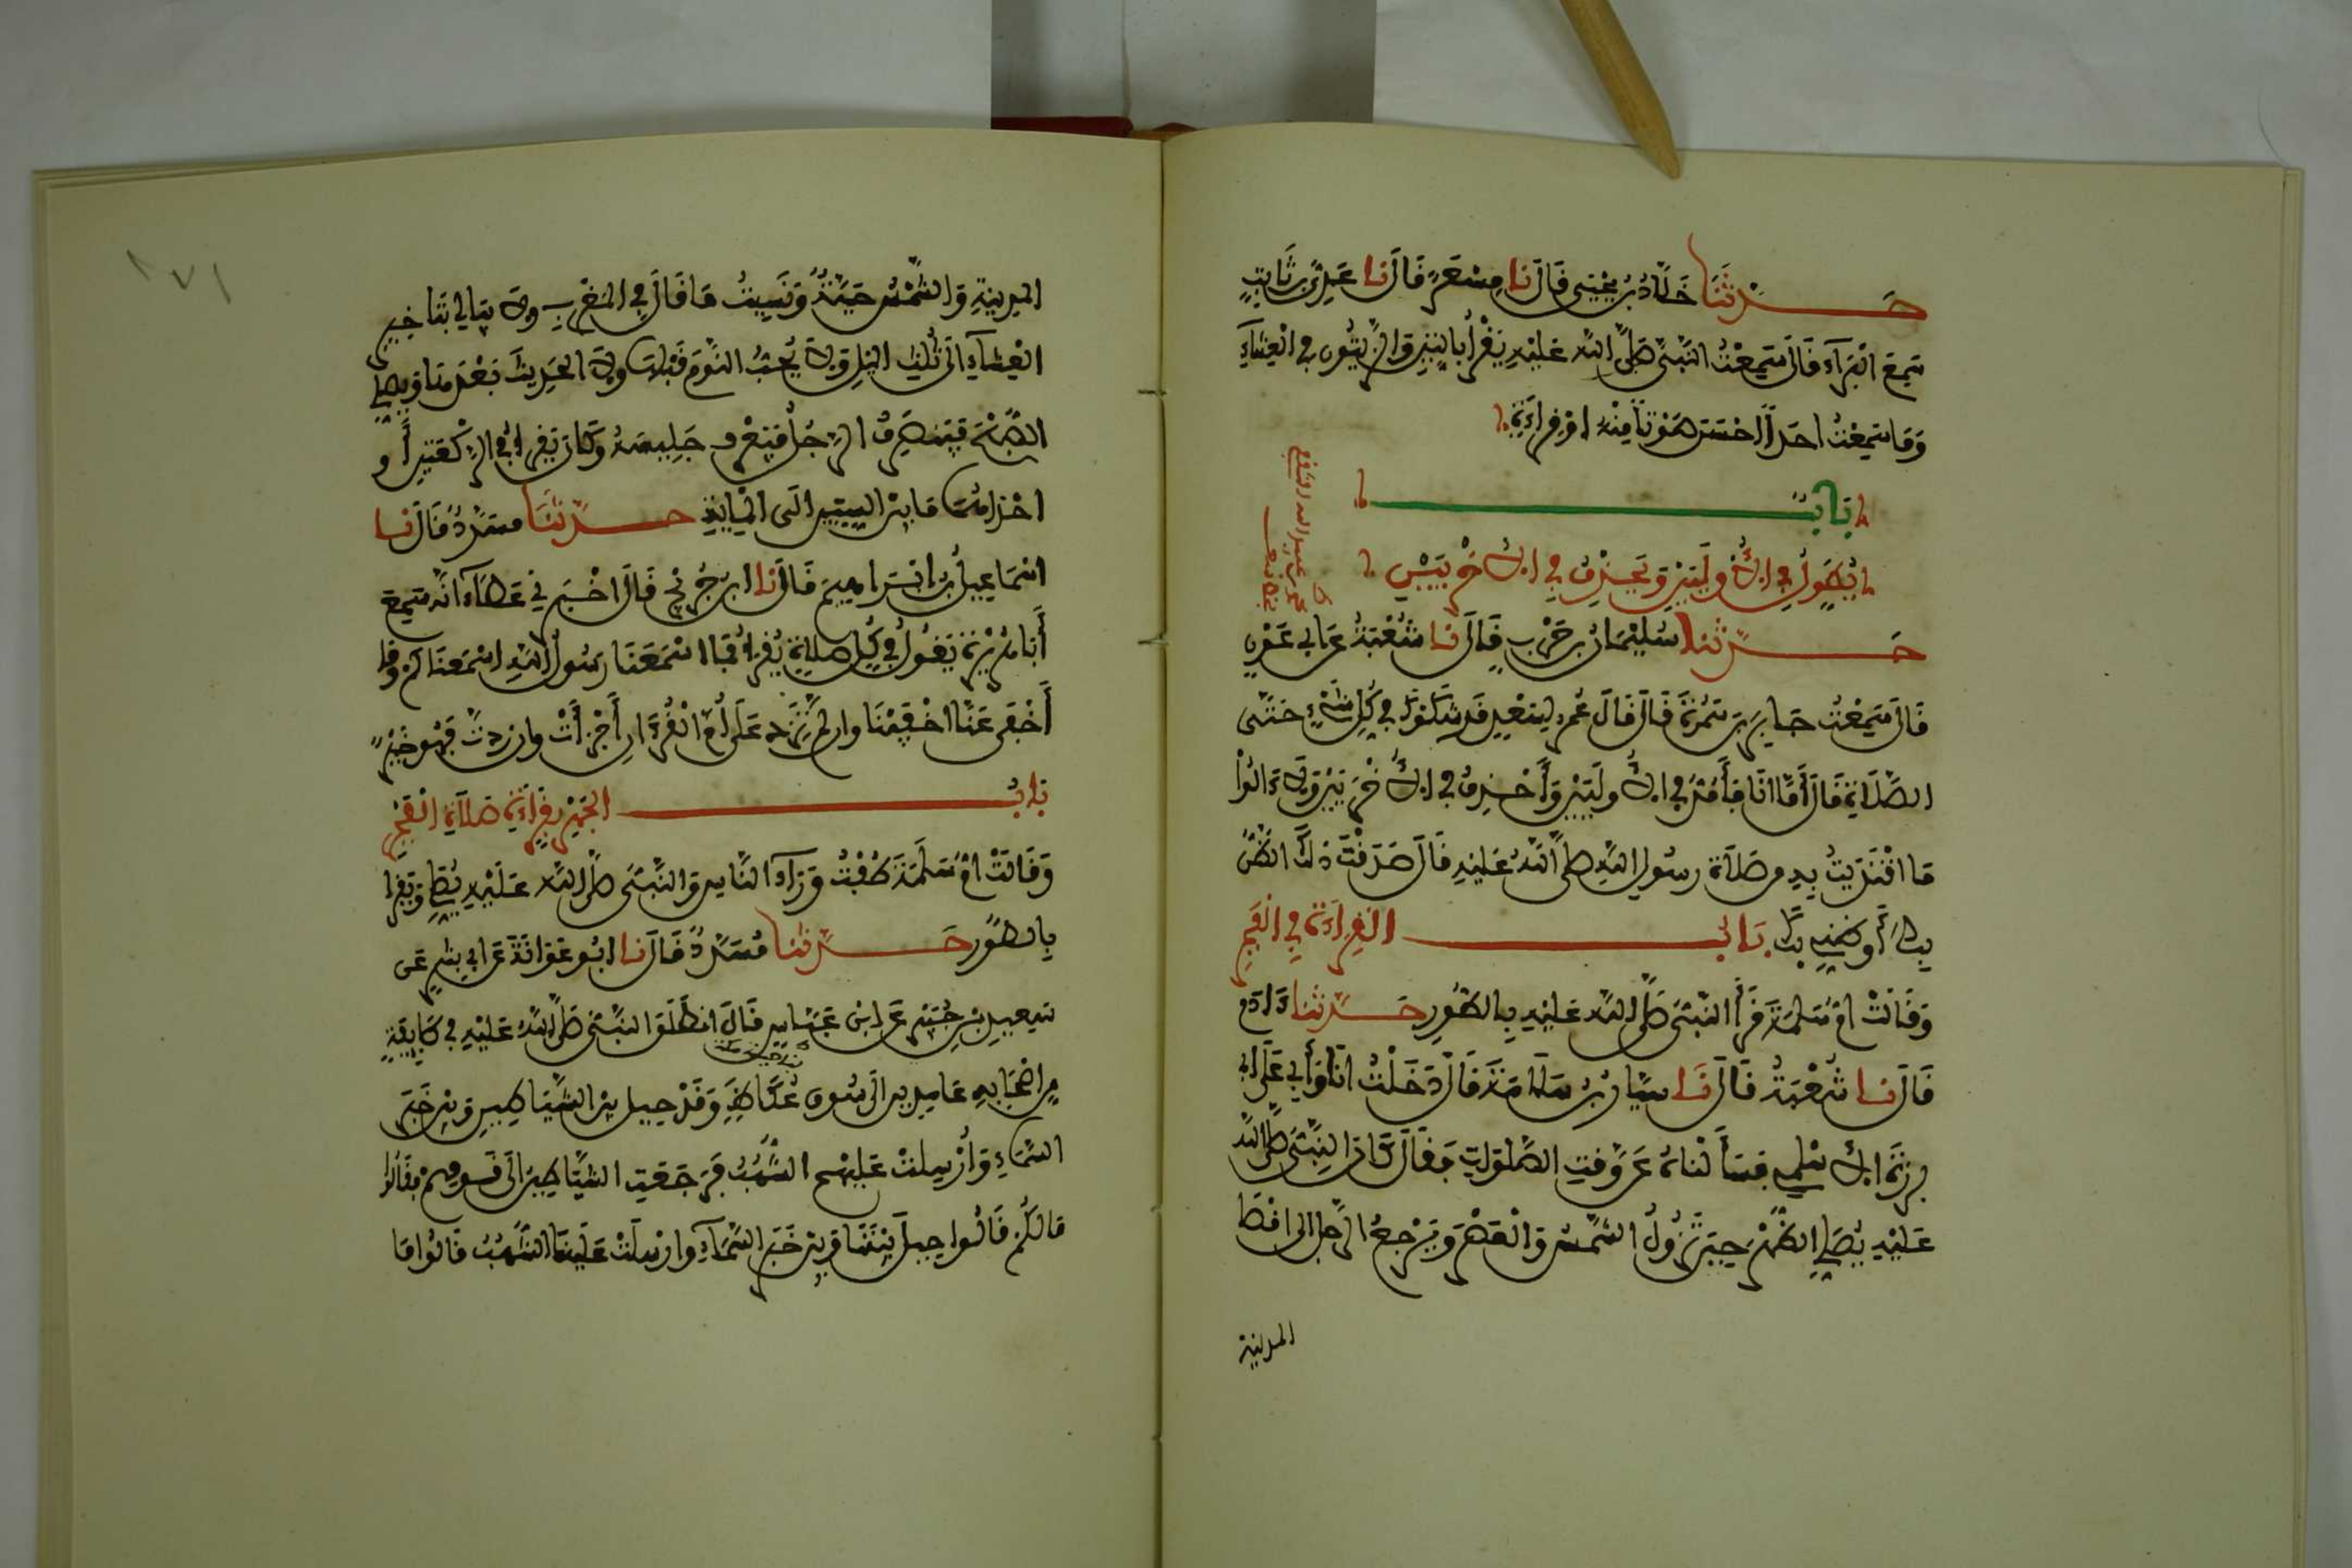 حَدَّثَنَا خَلَّادُ بْنُ يَحْيَى قَالَ نا مِسْعَرٌ قَالَ نا عَدِيُّ بْنُ ثَابِتٍ
سَمِعَ الْبَرَآءَ قَالَ سَمِعْتُ النَّبِيَّ صَلَّى اللَّه عَلَيْهِ يَقْرَأُ بِالتِّينِ وَالزَّيْتُونِ فِي الْعِشَآءِ
وَمَا سَمِعْتُ أَحَدًا أَحْسَنَ صَوْتًا مِنْهُ أَوْ قِرَاءَةً
بَابٌ
يُطَوِّلُ فِي الأُولَيَيْنِ وَيَحْذِفُ فِي الأُخْرَيَيْنِ
حَدَّثَنَا سُلَيْمَانُ بْنُ حَرْبٍ قَالَ نا شُعْبَةُ عَنْ أَبِي عَوْنٍ
قَالَ سَمِعْتُ جَابِرَ بْنَ سَمُرَةَ قَالَ قَالَ عُمَرُ لِسَعْدٍ قَدْ شَكَوْكَ فِي كُلِّ شَيْءٍ حَتَّى
الصَّلَاةِ قَالَ أَمَّا أَنَا فَأَمُدُّ فِي الأُولَيَيْنِ وَأَحْذِفُ فِي الأُخْرَيَيْنِ وَلَا ءَالُوا
مَا اقْتَدَيْتُ بِهِ مِنْ صَلَاةِ رَسُولِ اللَّهِ صَلَّى اللَّهُ عَلَيْهِ قَالَ صَدَقْتَ ذَلِكَ الظَّنُّ
بِكَ أَوْ ظَنِّي بِكَ بَابُ الْقِرَاءَةِ فِي الْفَجْرِ
وَقَالَتْ أُمُّ سَلَمَةَ قَرَأَ النَّبِيُّ صَلَّى اللَّه عَلَيْهِ بِالطُّورِ حَدَّثَنَا ءَادَمُ
قَالَ نا شُعْبَةُ قَالَ نَا سَيَّارُ بْنُ سَلَامَةَ قَالَ دَخَلْتُ أَنَا وَأَبِي عَلَى أَبِي
بَرْزَةَ الأَسْلَمِيِّ فَسَأَلْنَاهُ عَنْ وَقْتِ الصَّلَوَاتِ فَقَالَ كَانَ النَّبِيُّ صَلَّى اللَّه
عَلَيْهِ يُصَلِّي الظُّهْرَ حِينَ تَزُولُ الشَّمْسُ وَالْعَصْرَ وَيَرْجِعُ الرَّجُلُ إِلَى أَقْصَا
المدينة
١٧١
الْمَدِينَةِ وَالشَّمْسُ حَيَّةٌ وَنَسِيتُ مَا قَالَ فِي الْمَغْرِبِ وَلَا يُبَالِي بِتَأْخِيرِ
الْعِشَآءِ إِلَى ثُلُثِ اللَّيْلِ وَلَا يُحِبُّ النَّوْمَ قَبْلَهَا وَلَا الْحَدِيثَ بَعْدَهَا وَيُصَلِّي
الصُّبْحَ فَيَنْصَرِفُ الرَّجُلُ فَيَعْرِفُ جَلِيسَهُ وَكَانَ يَقْرَأُ فِي الرَّكْعَتَيْنِ أَوْ
إِحْدَاهُمَا مَا بَيْنَ السِّتِّينَ إِلَى الْمِائَةِ حَدَّثَنَا مُسَدَّدٌ قَالَ نا
إِسْمَاعِيلُ بْنُ إِبْرَاهِيمَ قَالَ نا ابْنُ جُرَيْجٍ قَالَ أَخْبَرَنِي عَطَآءٌ أَنَّهُ سَمِعَ
أَبَا هُرَيْرَةَ يَقُولُ فِي كُلِّ صَلَاةٍ يُقْرَأُ فَمَا أَسْمَعَنَا رَسُولُ اللَّهِ أَسْمَعْنَاكُمْ وَمَا
أَخْفَى عَنَّا أَخْفَيْنَا وَإِنْ لَمْ تَزِدْ عَلَى أُمِّ الْقُرْءَانِ أَجْزَأَتْ وَإِنْ زِدْتَ فَهُوَ خَيْرٌ
بَابُ الْجَهْرِ بِقِرَاءَةِ صَلَاةِ الْفَجْرِ
وَقَالَتْ أُمُّ سَلَمَةَ طُفْتُ وَرَآءَ النَّاسِ وَالنَّبِيُّ صَلَّى اللَّه عَلَيْهِ يُصَلِّي وَيَقْرَأُ
بِالطُّورِ حَدَّثَنَا مُسَدَّدٌ قَالَ نا أَبُو عَوَانَةَ عَنْ أَبِي بِشْرٍ عَنْ
سَعِيدِ بْنِ جُبَيْرٍ عَنِ ابْنِ عَبَّاسٍ قَالَ انْطَلَقَ النَّبِيُّ صَلَّى اللَّهُ عَلَيْهِ فِي طَائِفَةٍ
مِنْ أَصْحَابِهِ عَامِدِينَ إِلَى سُوقِ عُكَاظٍ وَقَدْ حِيلَ بَيْنَ الشَّيَاطِينِ وَبَيْنَ خَبَرِ
السَّمَاءِ وَأُرْسِلَتْ عَلَيْهِمُ الشُّهُبُ فَرَجَعَتِ الشَّيَاطِينُ إِلَى قَوْمِهِمْ فَقَالُوا
مَالَكُمْ قَالُوا حِيلَ بَيْنَنَا وَبَيْنَ خَبَرِ السَّمَآءِ وَأُرْسِلَتْ عَلَيْنَا الشُّهُبُ قَالُوا مَا